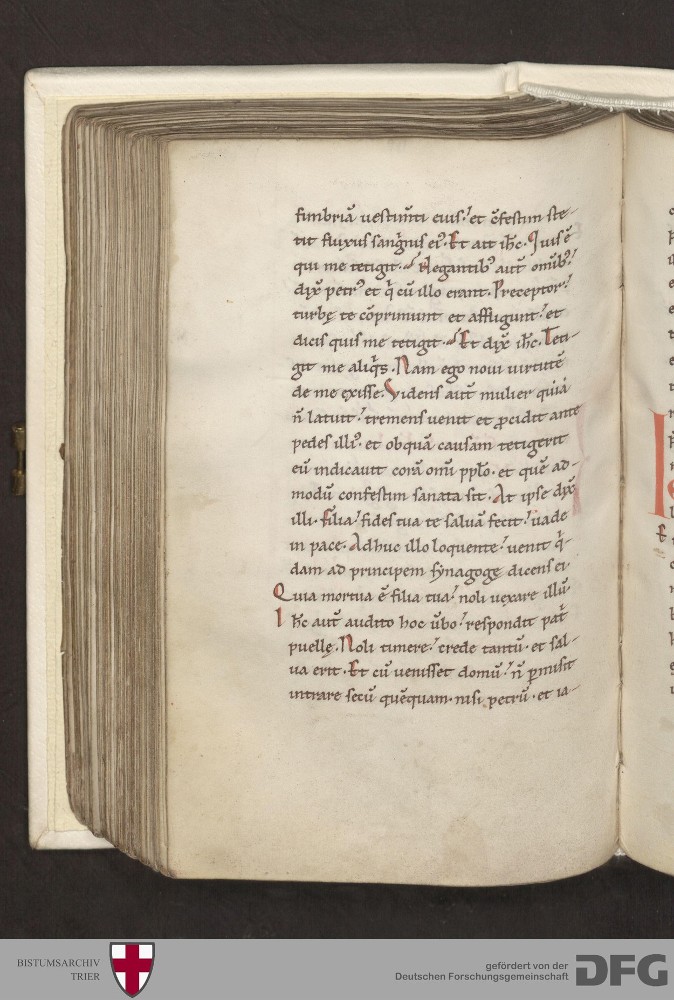 fimbriā uestim̄ti eius. et c̄festim ste-
tit fluxus sang̈nis ei᷒. Et ait ih̄c. Quis ē
qui me tetigit. Negantib᷒ aut̄ om̄ib᷒.
dix̄ petr᷒ et q̄ cū illo erant. Preceptor.
turbę te cōprimunt et affligunt. et
dicis quis me tetigit. Et dix̄ ih̄c. Teti-
git me aliq̈s. Nam ego noui uirtutē
de me exisse. Videns aut̄ mulier quia
n̄ latuit. tremens uenit et p̱cidit ante
pedes illi᷒. et ob quā causam tetigerit
eū indicauit corā om̄i pp̄lo. et quē ad-
modū confestim sanata sit. At ipse dix̄
illi. Filia. fides tua te saluā fecit. uade
in pace. Adhuc illo loquente. uenit q̄-
dam ad principem synagogę dicens ei
Quia mortua ē filia tua. noli uexare illū.
Ih̄c aut̄ audito hoc ūbo. respondit pat̄
puellę. Noli timere. crede tantū. et sal-
ua erit. Et cū uenisset domū. n̄ p̱misit
intrare secū quēquam. nisi petrū. et ia-
BISTUMSARCHIV
TRIER
gefördert von der
Deutschen Forschungsgemeinschaft
DFG